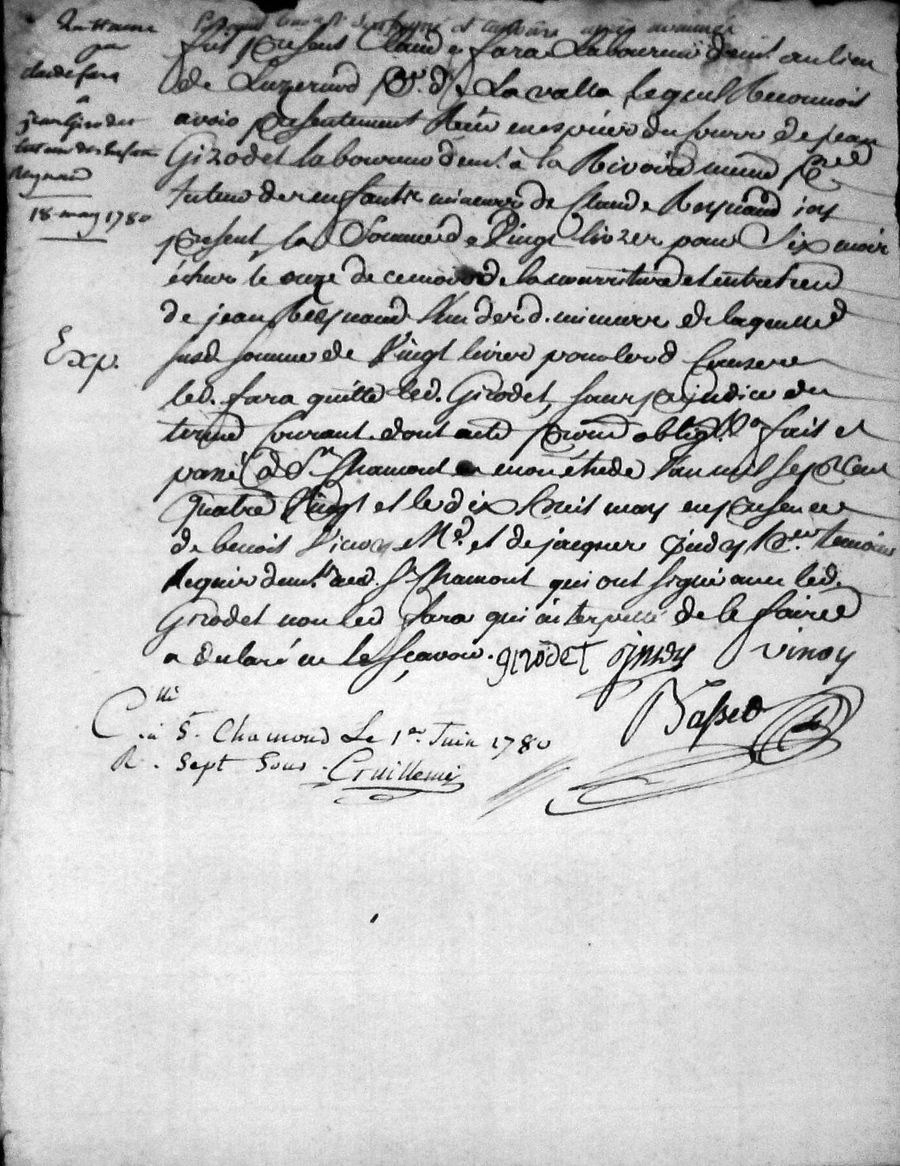 Quittance
par
claude fara
à
jean Girodet
tuteur des enfans
Reynaud
18. may 1780
Exp.
Par devant
fut présent Claude fara Laboureur demt. au lieu
de Luzernod psse. de La valla Lequel Reconnoit
avoir présentement Reçu en espèces du jourd. de jean
Girodet laboureur demt. à la Rivoire meme psse
tuteur des enfants mineurs de Claude Reynaud icy
présent, la Somme de Vingt livres pour Six mois
échus le onze de ce mois de la nourriture et entretien
de jean Reynaud l'un desd. mineurs de laquelle
susd. somme de Vingt livres pour les d. Causes
led. fara quitte led. Girodet, sans préjudice du
terme Courant. dont acte prom. oblig. &a fait et
passé à St. Chamont en mon étude l'an mil sept Cent
quatre Vingt et le dix huit may en présence
de benoit Vinoy Md. et de jacques gindy temoins
Requis demt. aud. St. Chamont qui ont signé avec led.
Girodet non led fara qui interpellé de le faire
a declaré ne le sçavoir. girodet gindy vinoy
Basset
C.llé à St. Chamond Le 1er. Juin 1780
R. Sept Sous. Cruilleme